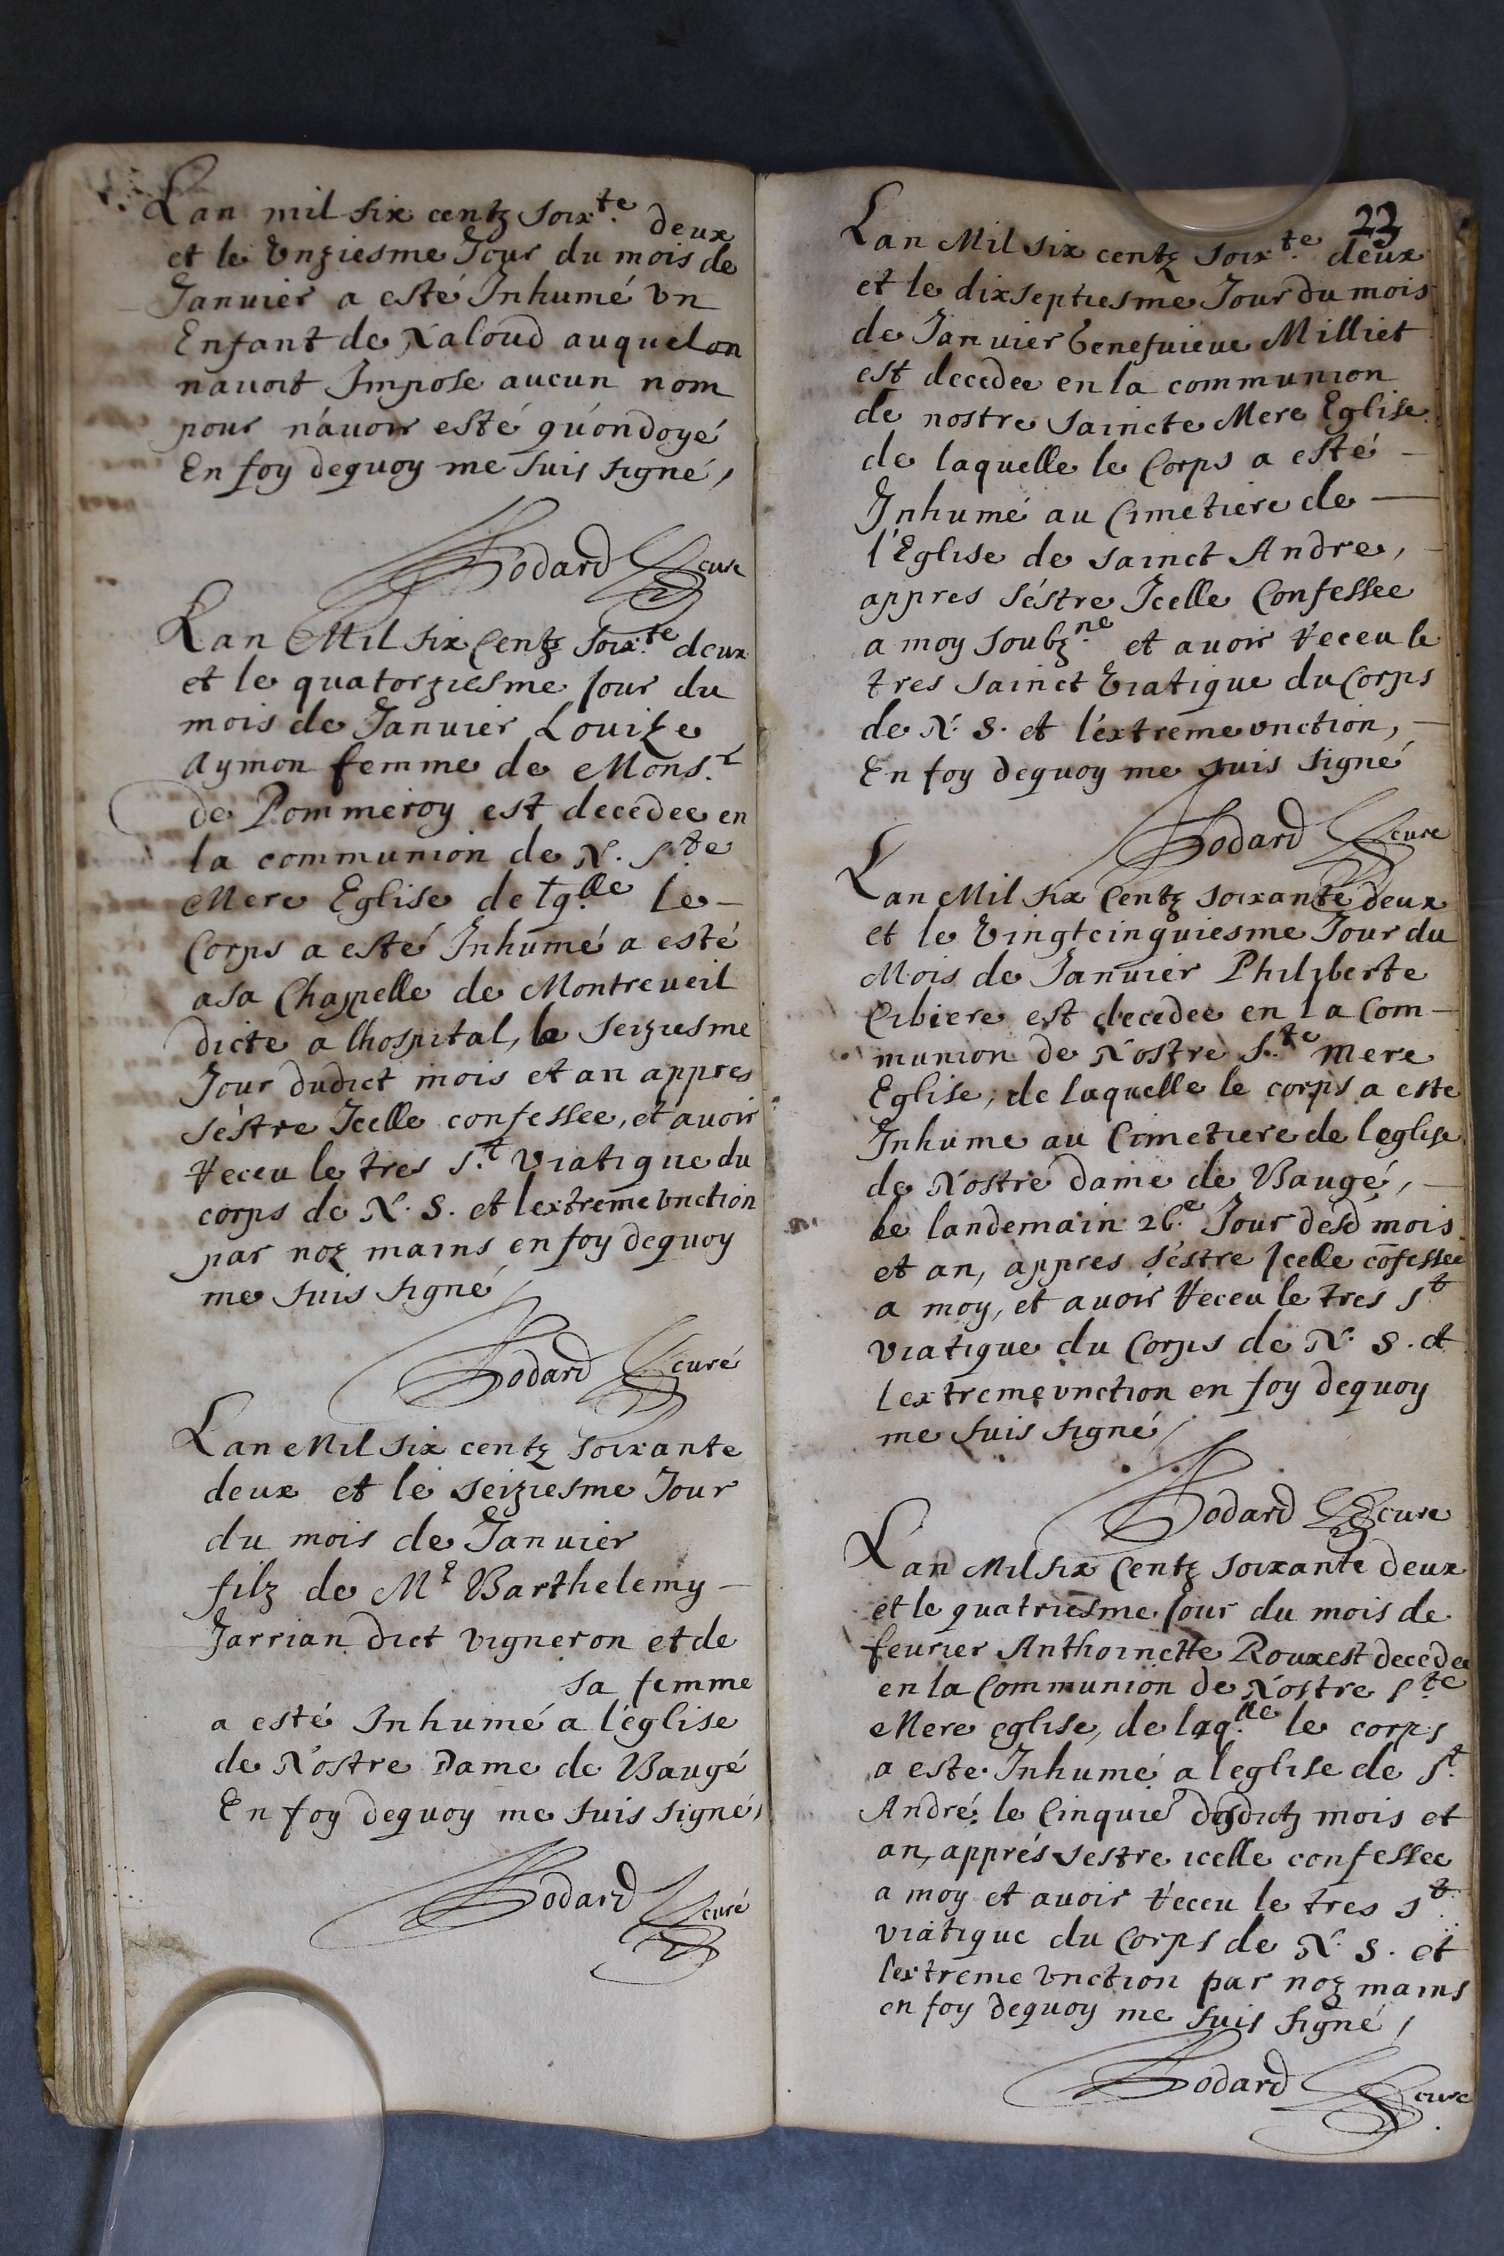 Lan mil six centz soix.te deux
et le Vnziesme Jour du mois de
Januier a esté Inhumé vn
Enfant de Naloud auquel on
nauoit Impose aucun nom
pour n'áuoir esté qu'óndoyé
En foy dequoy me suis signé,
Bodard curé
Lan Mil six Centz soix.te deux
et le quatorziesme Jour du
mois de Januier Louize
Aymon femme de Mons.r
de Pommeroy est decedee en
la communion de N. S.te
Mere Eglise de lq.lle le
Corps a esté Inhumé a esté
a sa Chappelle de Montreueil
dicte a lhospital, le seiziesme
Jour dudict mois et an appres
s'éstre Icelle confessee, et auoir
receu le tres s.t viatique du
corps de N. S. et lextreme vnction
par noz mains en foy dequoy
me suis signé
Bodard curé
Lan Mil six centz soixante
deux et le seiziesme Jour
du mois de Januier
filz de M.r Barthelemy
Jarrian dict vigneron et de
sa femme
a esté Inhumé a l'église
de Nostre Dame de Baugé
En foy dequoy me suis signé,
Bodard curé
23
Lan Mil six centz soix.te deux
et le dixseptiesme Jour du mois
de Januier Genefuieue Milliet
est decedee en la communion
de nostre saincte Mere Eglise
de laquelle le Corps a esté
Inhumé au Cimetiere de
l'Eglise de sainct Andre,
appres s'éstre Icelle Confessee
a moy soubz.né et auoir receu le
tres sainct Viatique du Corps
de N. S. et l'éxtreme vnction,
En foy dequoy me suis signé
Bodard curé
Lan Mil six Centz soixante deux
et le Vingtcinquiesme Jour du
Mois de Januier Philiberte
Cibiere est decedee en la Com-
munion de Nostre S.te mere
Eglise, de laquelle le corps a esté
Inhume au Cimetiere de leglise
de Nostre dame de Baugé,
le landemain 26.e Jour desd mois
et an, appres s'éstre Icelle cōfessee
a moy, et auoir receu le tres s.t
viatique du Corps de N. S. et
lextreme vnction en foy dequoy
me suis signé
Bodard curé
Lan Mil six Centz soixante deux
et le quatriesme Jour du mois de
feurier Anthoinette Roux est decedee
en la Communion de Nostre S.te
Mere eglise, de laq.lle le corps
a esté Inhumé a leglise de S.t
André, le Cinquie desdictz mois et
an, apprés sestre icelle confessee
a moy et auoir receu le tres s.t
viatique du Corps de N. S. et
lextreme vnction par noz mains
en foy dequoy me suis signé,
Bodard curé